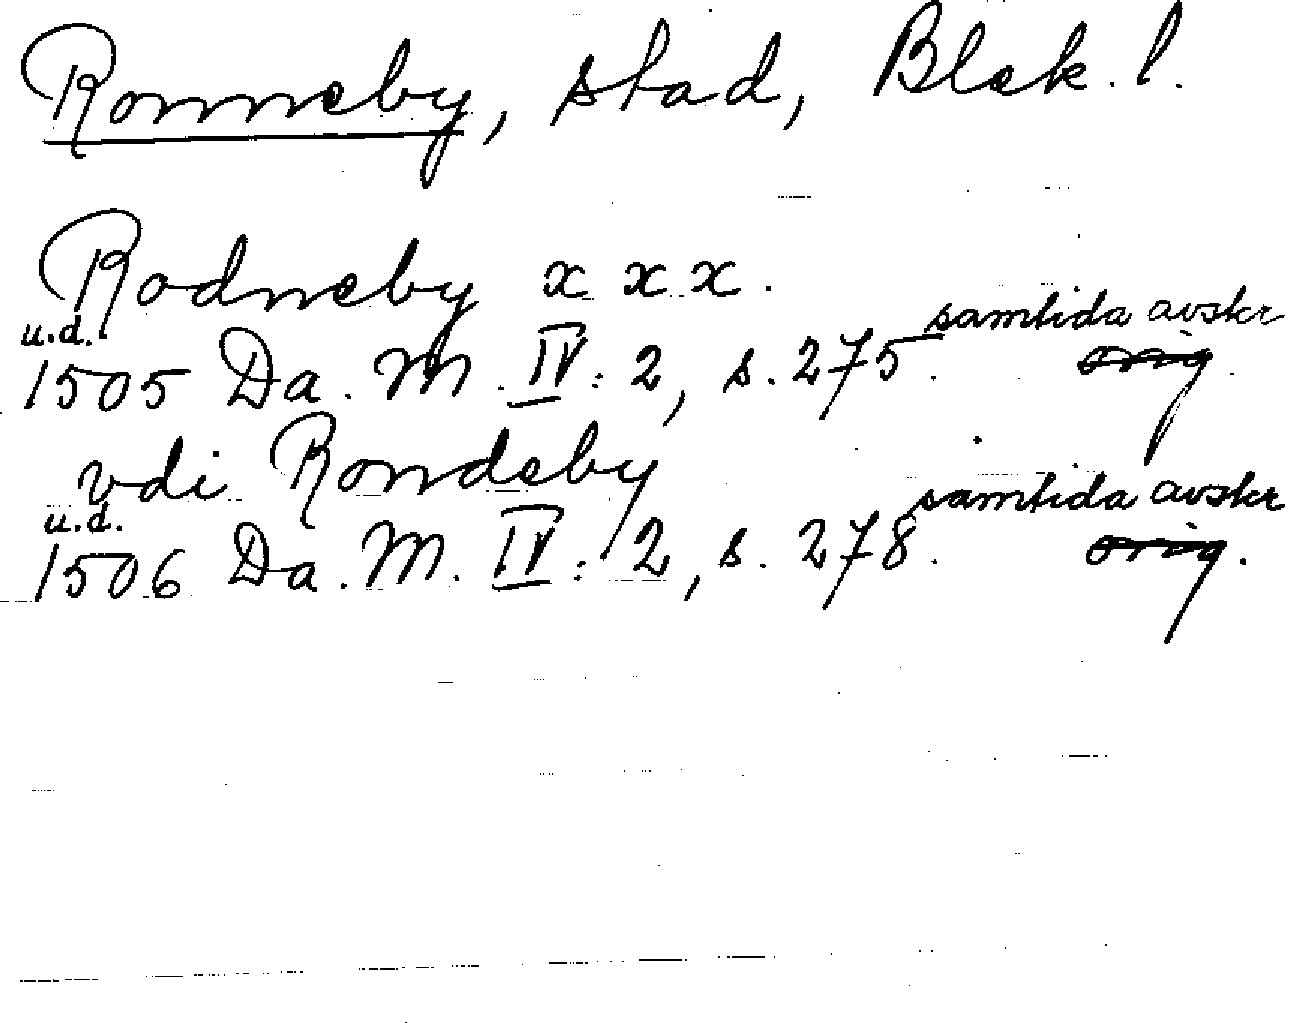 Ronneby, stad, Blek. l.
Rodneby x x x.
u.d.
1505 Da. M. IV: 2, s. 275. samtida avskr
orig.
vdi Rondeby
u.d.
1506 Da. M. IV: 2, s. 278. samtida avskr
orig.